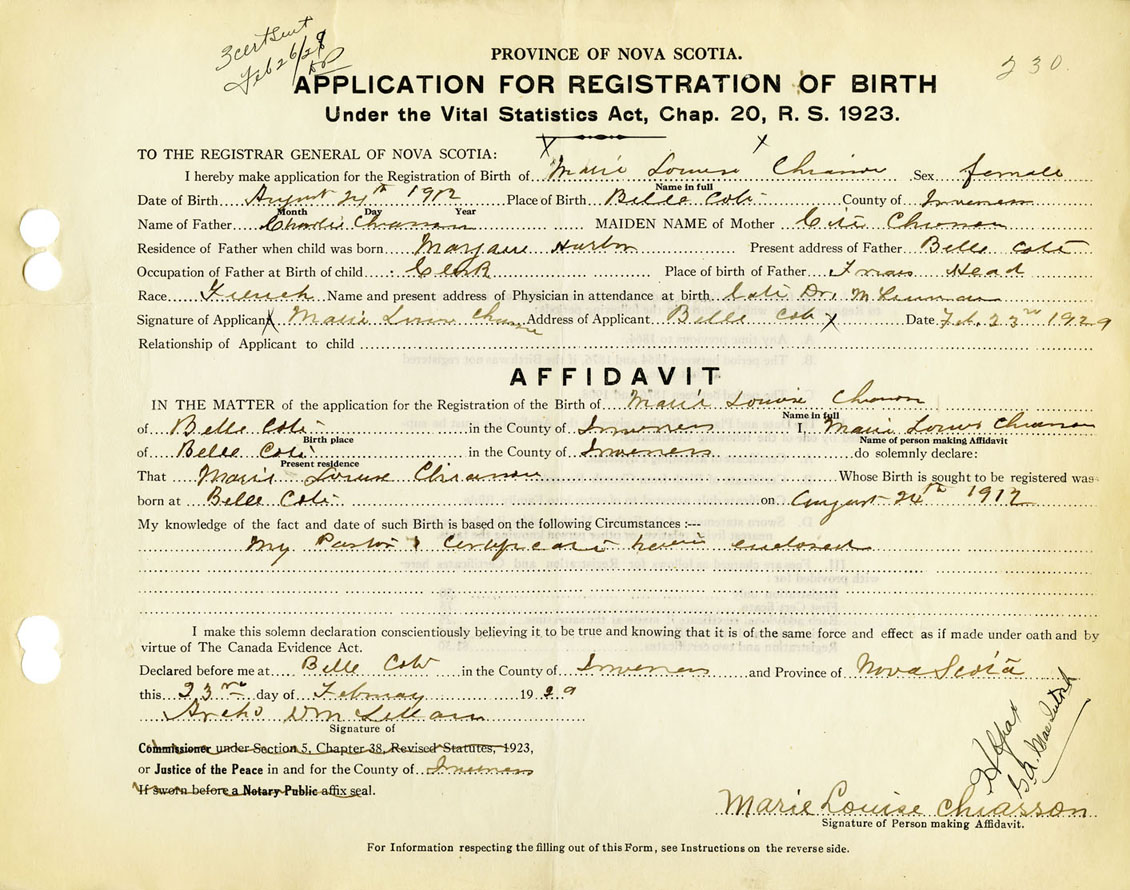 3 cert sent
Feb 26/29
230.
PROVINCE OF NOVA SCOTIA.
APPLICATION FOR REGISTRATION OF BIRTH
Under the Vital Statistics Act, Chap. 20, R. S. 1923.
TO THE REGISTRAR GENERAL OF NOVA SCOTIA:
I hereby make application for the Registration of Birth of Marie Louise Chiasson Sex female
Name in full
Date of Birth August 24th 1912 Place of Birth Belle Cote County of Inverness
Month Day Year
Name of Father Charlie Chiasson MAIDEN NAME of Mother Chiasson
Residence of Father when child was born Margaree Harbor Present address of Father Belle Cote
Occupation of Father at Birth of child Clerk Place of birth of Father Friars Head
Race French Name and present address of Physician in attendance at birth Late Dr.
Signature of Applicant X Marie Louise Chiasson Address of Applicant Belle Cote X Date Feb. 23rd 1929
Relationship of Applicant to child
AFFIDAVIT
IN THE MATTER of the application for the Registration of the Birth of Marie Louise Chiasson
Name in full
of Belle Cote in the County of Inverness I, Marie Louise Chiasson
Birth place Name of person making Affidavit
of Belle Cote in the County of Inverness do solemnly declare:
Present residence
That Marie Louise Chiasson Whose Birth is sought to be registered was
born at Belle Cote on August 24th 1912
My knowledge of the fact and date of such Birth is based on the following Circumstances :---
My Pastor's Certificate herein enclosed
I make this solemn declaration conscientiously believing it to be true and knowing that it is of the same force and effect as if made under oath and by
virtue of The Canada Evidence Act.
Declared before me at Belle Cote in the County of Inverness and Province of Nova Scotia
this 23rd day of February 1929
Signature of
Commissioner under Section 5, Chapter 38, Revised Statutes, 1923,
or Justice of the Peace in and for the County of Inverness
If sworn before a Notary Public affix seal.
Marie Louise Chiasson
Signature of Person making Affidavit.
For Information respecting the filling out of this Form, see Instructions on the reverse side.